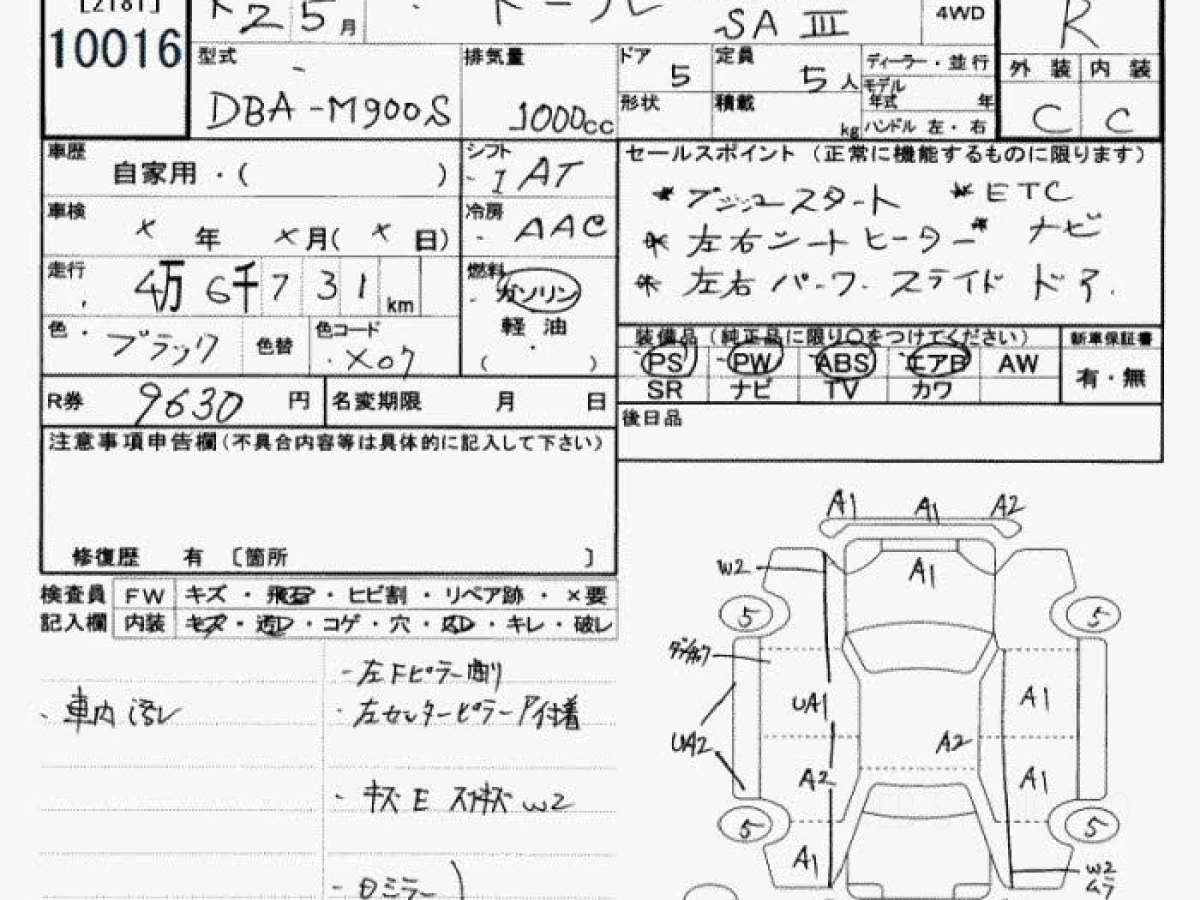 [2181]
10016
25月
SA III
4WD
R
型式
DBA-M900S
排気量
1000cc
ドア
5
形状
定員
5人
積載
kg
ディーラー・並行
モデル
年式 年
ハンドル 左・右
外装 内装
C C
車歴
自家用・( )
シフト
I AT
車検
× 年 × 月( × 日)
冷房
AAC
走行
4万6千731km
燃料
ガソリン
軽油
( )
色
ブラック
色替
色コード
X07
R券 9630円
名変期限 月 日
セールスポイント(正常に機能するものに限ります)
* プッシュスタート * ETC
* 左右シートヒーター * ナビ
* 左右パワースライドドア.
装備品(純正品に限り○をつけてください)
PS PW ABS エアB AW
SR ナビ TV カワ
新車保証書
有・無
後日品
注意事項申告欄(不具合内容等は具体的に記入して下さい)
修復歴 有 〔箇所 〕
検査員 FW キズ・飛石・ヒビ割・リペア跡・×要
記入欄 内装 キズ・・コゲ・穴・・キレ・破レ
・車内汚レ
・左Fピラー
・左センターピラー付着
・キズE W2
ミラー
A1 A1 A2
W2
A1
5 5
UA1
A1
UA2
A2
A2
A1
5 5
A1
W2
ムラ